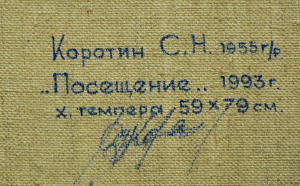 Коротин С.Н. 1955 г/р
„Посещение„ 1993 г.
х. темпера 59×79 см.